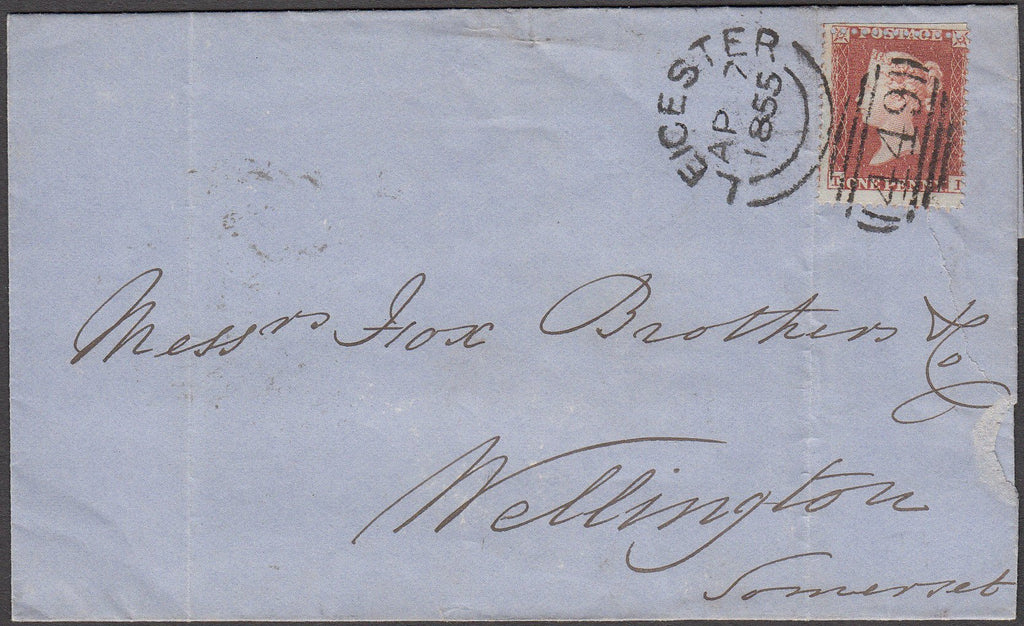 POSTAGE
ONE PENNY
I
LEICESTER
AP 7
1855
449
Messrs Fox Brothers & Co
Wellington
Somerset